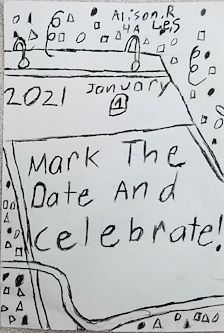 Alison.R
4A LES
2021 January
1
Mark The
Date And
celebrate!